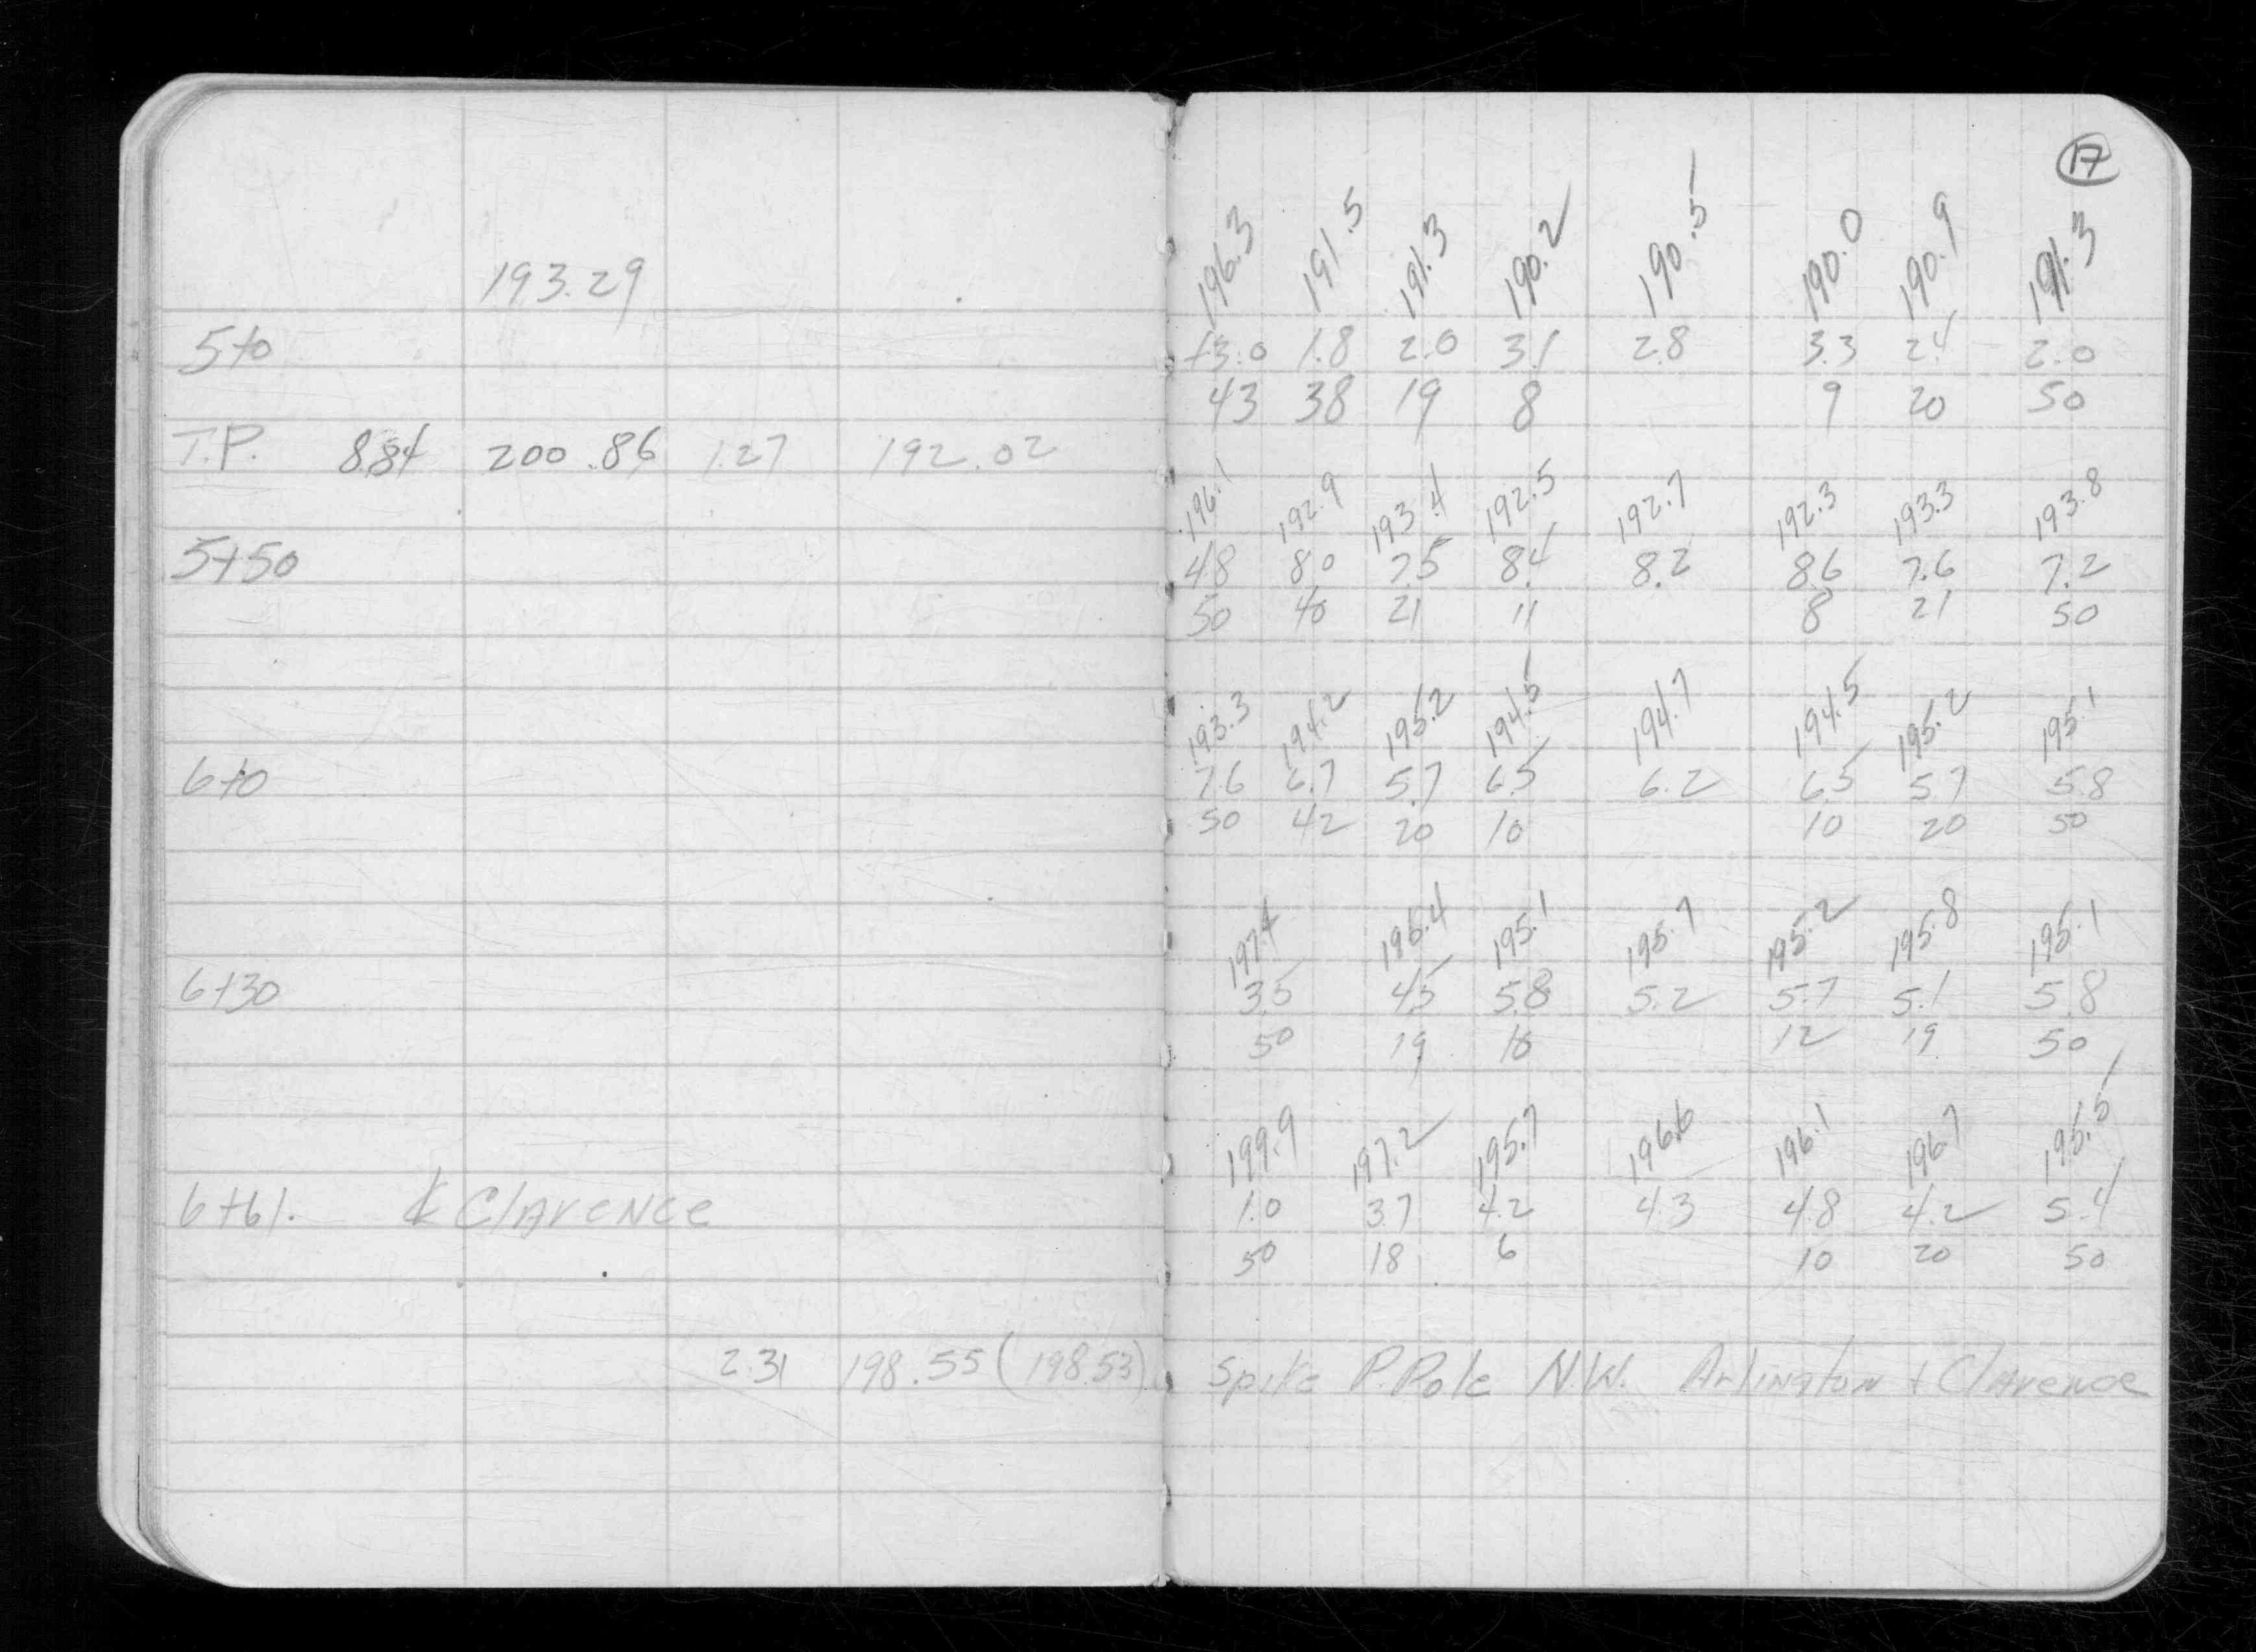 17
193.29
196.3 191.5 191.3 190.2 190.5 190.0 190.9 191.3
5+0 +3.0 1.8 2.0 3.1 2.8 3.3 2.4 2.0
43 38 19 8 9 20 50
T.P. 8.84 200.86 1.27 192.02
196.1 192.9 193.4 192.5 192.7 192.3 193.3 193.8
5+50 4.8 8.0 7.5 8.4 8.2 8.6 7.6 7.2
50 40 21 11 8 21 50
193.3 194.2 195.2 194.5 194.7 194.5 195.2 195.1
6+0 7.6 6.7 5.7 6.5 6.2 6.5 5.7 5.8
50 42 20 10 10 20 50
197.4 196.4 195.1 195.7 195.2 195.8 195.1
6+30 3.5 4.5 5.8 5.2 5.7 5.1 5.8
50 19 12 19 50
199.9 197.2 195.7 196.6 196.1 196.7 195.5
6+61. ℄ Clarence 1.0 3.7 4.2 4.3 4.8 4.2 5.4
50 18 6 10 20 50
2.31 198.55 (198.53) Spike P.Pole N.W. Arlington + Clarence